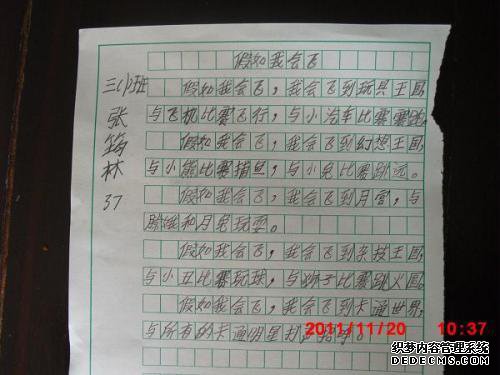 假如我会飞
三(1)班
张
筠
林
37
假如我会飞,我会飞到玩具王国,
与飞机比赛飞行,与小汽车比赛赛跑。
假如我会飞,我会飞到幻想王国,
与小熊比赛捕鱼,与小兔比赛跳远。
假如我会飞,我会飞到月宫,与
嫦娥和月兔玩耍。
假如我会飞,我会飞到杂技王国,
与小丑比赛玩球,与狮子比赛跳火圈。
假如我会飞,我会飞到卡通世界,
与所有的卡通明星打
2011/11/20 10:37
织梦内容管理系统
DEDECMS.COM